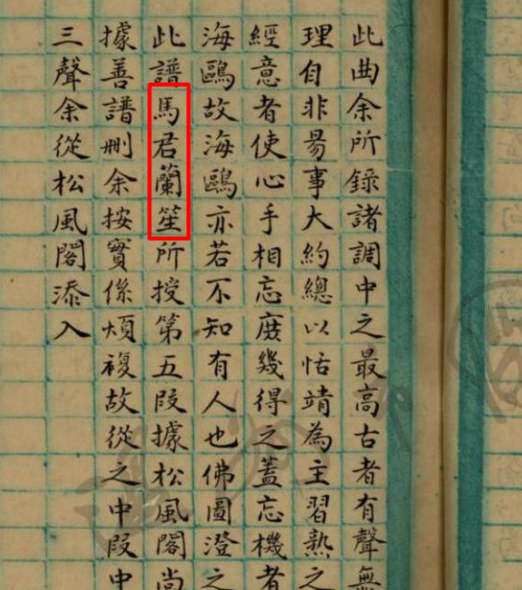 此曲余所錄諸調中之最高古者有聲無
理自非昜事大約總以恬靖為主習熱之
經意者使心手相忘庻幾得之蓋忘機者
海鷗故海鷗亦若不知有人也佛圖澄之
此譜馬君蘭笙所授第五段據松風閣尚
據善譜刪余按實係煩複故從之中段中
三聲余從松風閣添入